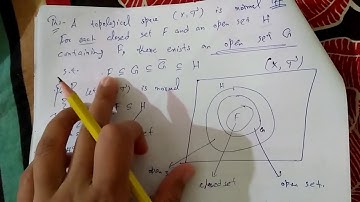 A topological space (X, T) is normal iff
For each closed set F and an open set H
containing F, there exists an open set G
s.t. F ⊆ G ⊆ G̅ ⊆ H
(X, T)
is normal
⊆ H
H
F
G
closed set
open set.